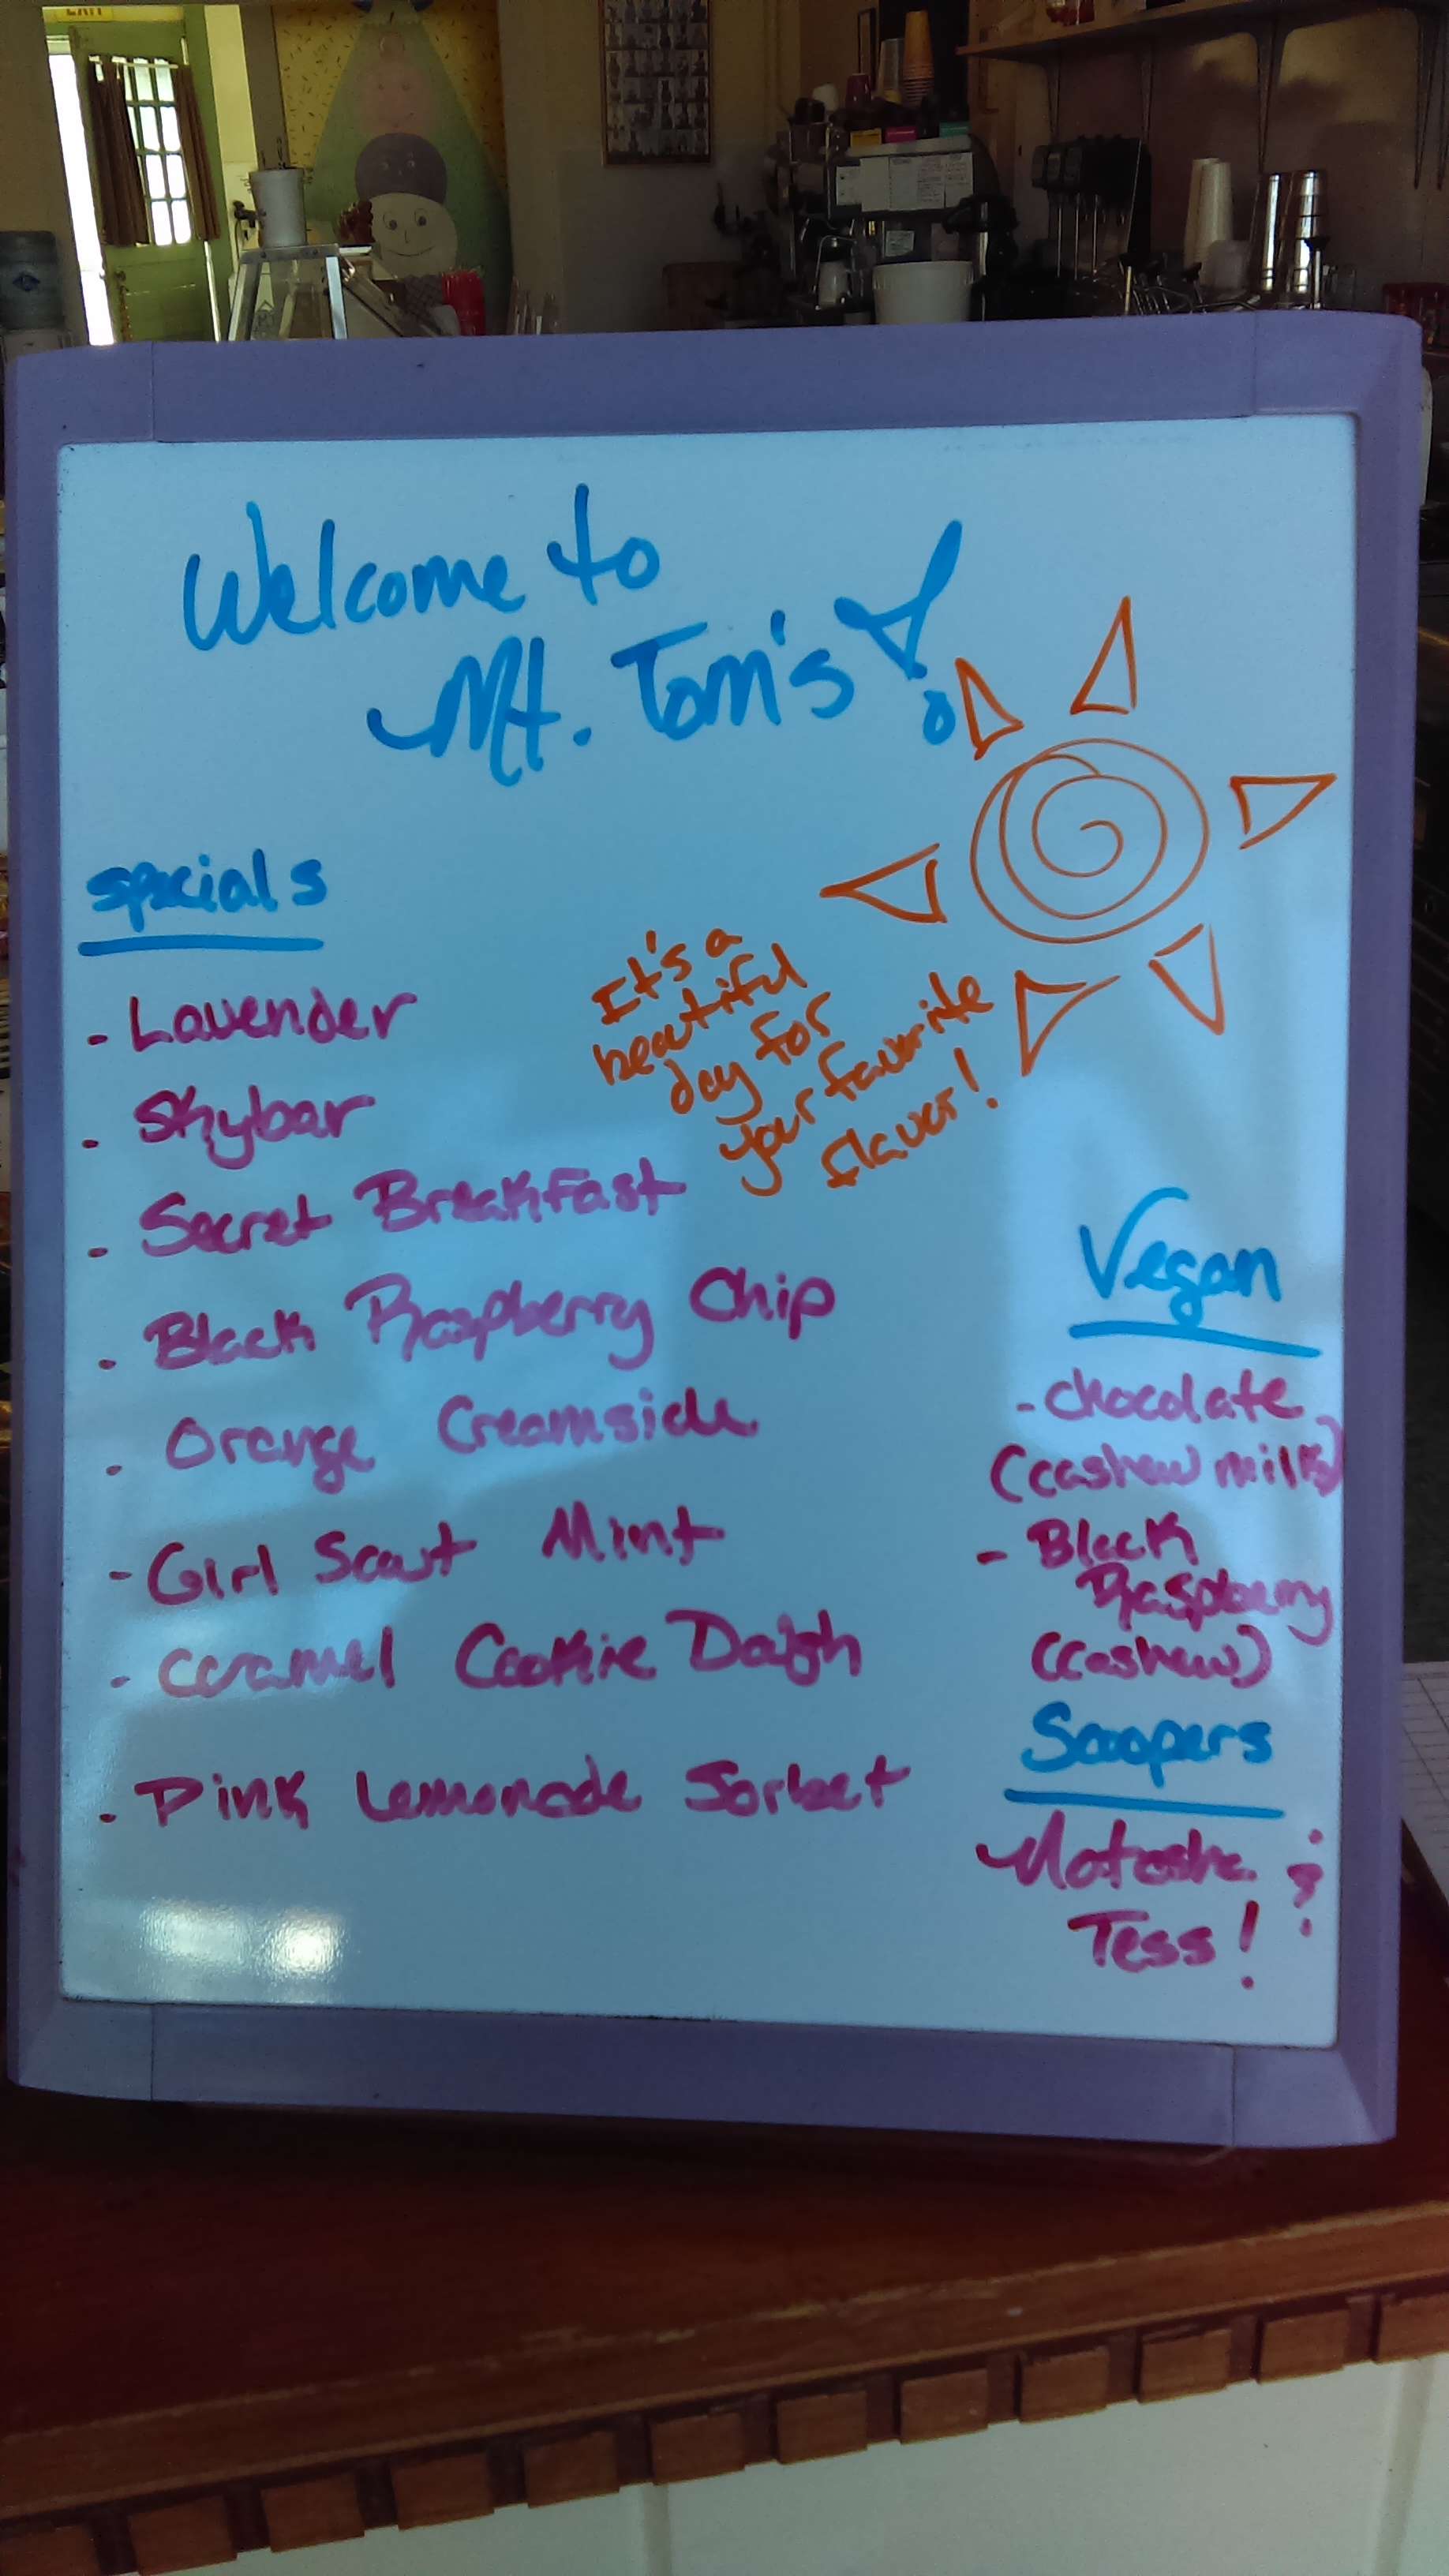 EXIT
Welcome to
Mt. Tom's!
specials
- Lavender
. Skybar
. Secret Breakfast
. Black Raspberry Chip
. Orange Creamsicle
- Girl Scout Mint
- Caramel Cookie Dough
. Pink Lemonade Sorbet
It's a
beautiful
day for
your favorite
flavor!
Vegan
- Chocolate
(cashew milk)
- Black
Raspberry
(cashew)
Scoopers
Natasha &
Tess!